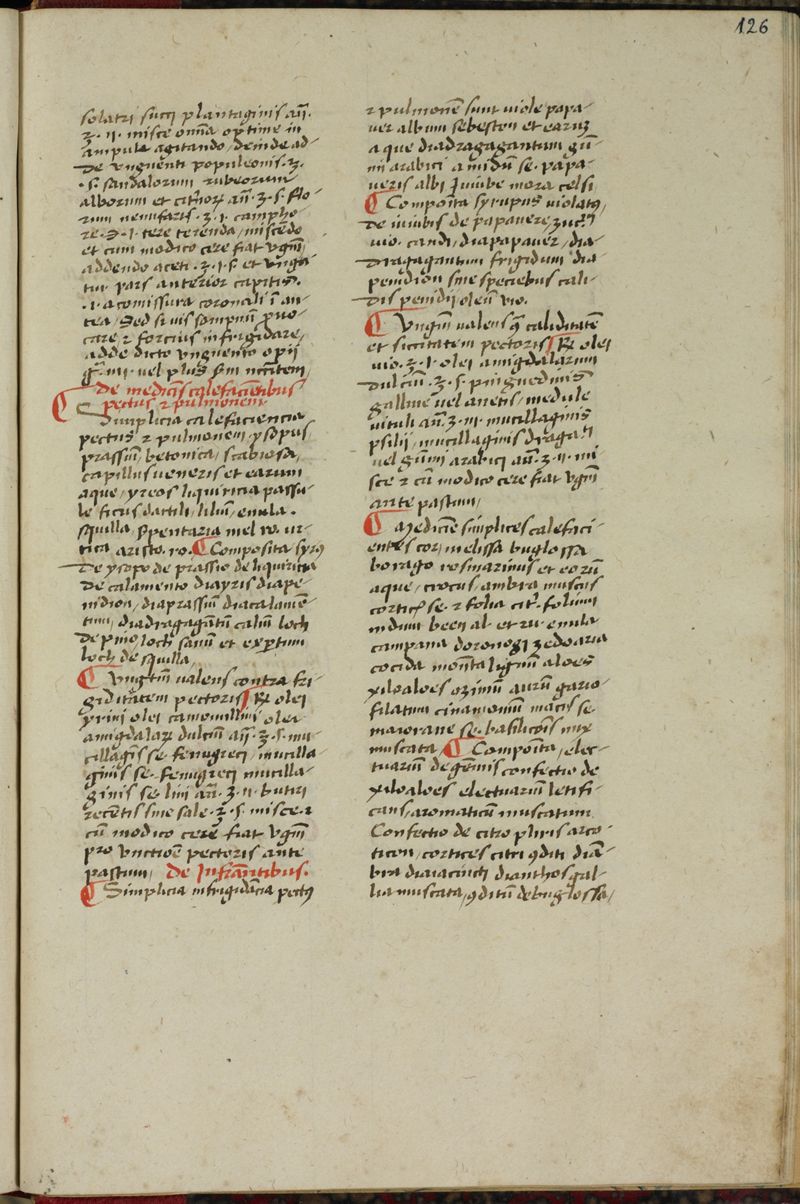 126
solatri succi plantaginis añ.
ʒ. ij. misce om̃a optime in
ampula agitando / deinde ad-
de vnguenti populeonis. ʒ.
. s. sandalorum rubeorum
alborum et citrinoꝝ añ. ʒ. s. flo-
rum nenufaris. ʒ. j. campho
re. ℈. j. tere terenda / misc̃edo
et cum modico cere fiat vgm̃
addendo aceti. ʒ. j. s. et vnga-
tur pars anterior capitis.
.i. a comissura coronali ĩ an-
tea / Sed si vis sompnũ ꝓuo-
care ⁊ forcius infrigidare,
adde dicto vnguento opij
gᷓ. iij. vel plus s̃m nc̃citem /
De medicĩs calefaciẽtibus
pectus ⁊ pulmonem.
Simplicia calefaciencia
pectus ⁊ pulmonem / ysopus /
prassiũ / betonica / scabiosa /
capillus veneris et earum
aque / yreos liquiricia passu-
le ficus dactili / liliũ / enula.
squilla / serpentaria mel ro. ur-
tica aristo. ro. Composita syrꝰ
de ysopo de prassio de liquiricia
de calamento diayris diape-
nidion / diaprassiũ diacalamẽ-
tum / diadragagãtũ calidũ loch
de pino loch sanũ et exp̱tum
loch de squilla /
Vngtũm valens contra fri-
giditatem pectoris ℞ olei
yrini olei camomillini olei
amigdalaꝝ dulciũ añ. ʒ. s. mu-
cillagĩs se. fenugreci / mucilla-
ginis se. fenugreci mucilla-
ginis se. lini añ. ʒ. ij. butiri
recẽtis sine sale. ʒ. s. misce ⁊
cũ modico cere fiat vgm̃
pro vnctiõe pectoris ante
pastum / De Infrãntibus.
Simplicia infrigidãcia pectꝰ
⁊ pulmonẽ sunt viole papa-
uer album sebesten et earuʒ
aque diadragagantum gũ-
mi arabici amidũ se. papa-
ueris albi Jviube mora celsi
Composita syrupus violatꝰ,
de iuiubis de papauere ʒucꝛ̃
vio. candi / diapapauer / dia-
dragagantum frigidum dia
penidion sine speciebus cali-
dis penidij oleũ vio.
Vngtũm valens ꝯ̃ caliditatẽ
et siccitatem pectoris ℞ olei
vio. ʒ. j. olei amigdalarum
dulciũ. ʒ. s. pinguedinis
galline vel anetis / medule
vituli añ. ʒ. iij. mucillaginis
psilij / mucillaginis dragaꝯti
vel gũmi arabici añ. ʒ. ij. mi-
sce ⁊ cũ modico cere fiat vgm̃
ante pastum /
Medicine simplices calefaci-
entes cor / melissa buglossa
borago rosmarinus et eorũ
aque / crocus ambra muscus
corticꝭ se. ⁊ folia citꝛ. folium
indum been al. et ru. enula
campana doronogi zedoaria
cocida mõnta lignũ aloes
xiloaloes oʒimũ aurũ gario-
filatum cinamomũ macis se.
maiorane se. basilicõis nux
muscata / Composita / elec-
tuariũ de gẽmis confectio de
xiloaloes electuariũ letifi-
cans aromaticũ muscatum
Confectio de citro pliris arco-
ticon / cortices citri ꝯditi diã-
bra diaiacincti dianthos gal-
lia muscata / ꝯditũ de buglossa /